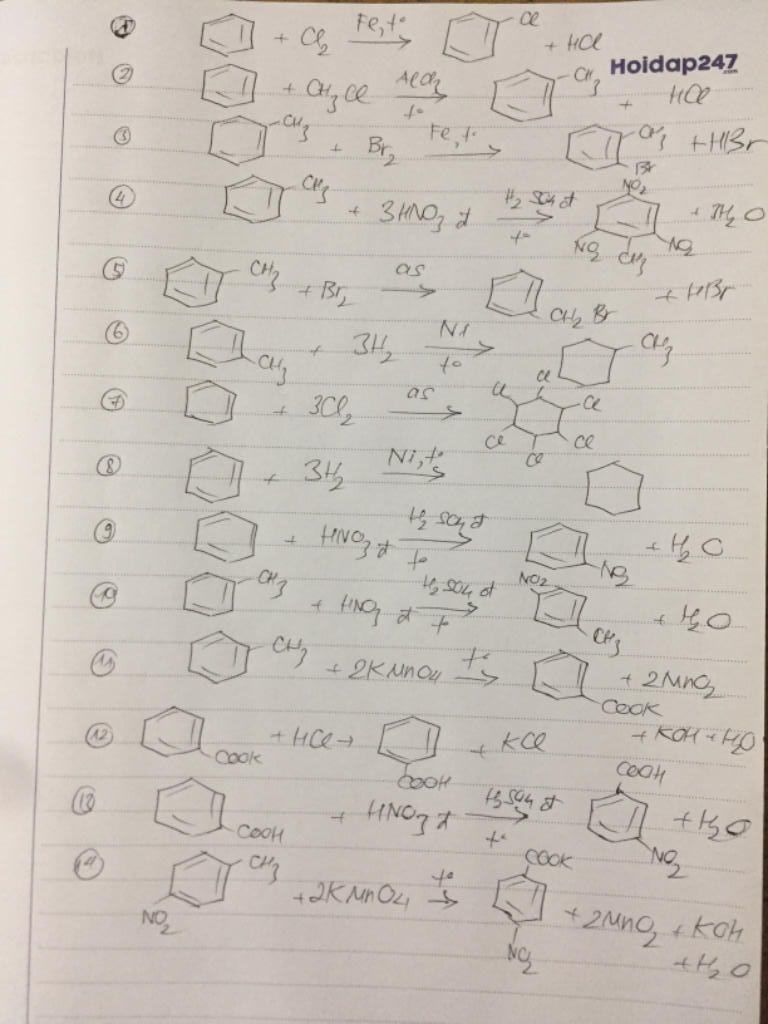 ① + Cl₂ Fe, t° → Cl + HCl
Hoidap247.com
② + CH₃Cl AlCl₃ t° → CH₃ + HCl
③ CH₃ + Br₂ Fe, t° → CH₃ Br + HBr
④ CH₃ + 3HNO₃ đ H₂SO₄ đ t° → NO₂ NO₂ CH₃ NO₂ + 3H₂O
⑤ CH₃ + Br₂ as → CH₂Br + HBr
⑥ CH₃ + 3H₂ Ni t° → CH₃
⑦ + 3Cl₂ as → Cl Cl Cl Cl Cl Cl
⑧ + 3H₂ Ni, t° →
⑨ + HNO₃ đ H₂SO₄ đ t° → NO₂ + H₂O
⑩ CH₃ + HNO₃ đ H₂SO₄ đ t° → NO₂ CH₃ + H₂O
⑪ CH₃ + 2KMnO₄ t° → COOK + 2MnO₂
+ KOH + H₂O
⑫ COOK + HCl → COOH + KCl
⑬ COOH + HNO₃ đ H₂SO₄ đ t° → COOH NO₂ + H₂O
⑭ CH₃ NO₂ + 2KMnO₄ t° → COOK NO₂ + 2MnO₂ + KOH
+ H₂O